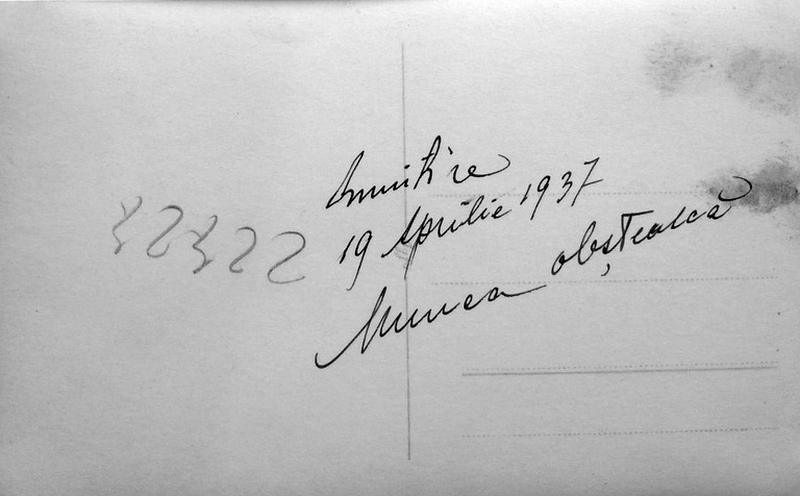 Amintire
19 Aprilie 1937
Munca obștească